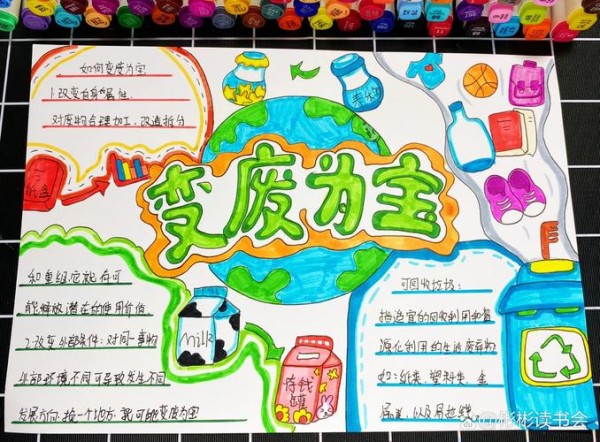 如何变废为宝
1.改变自身属性.
对废物合理加工、改造拆分
变废为宝
和重组它就有可
能释放潜在的使用价值.
2.改变外部条件:对同一事物
外部环境不同可导致发生不同
发展方向.换一个地方,就可能变废为宝
milk
存钱罐
可回收垃圾:
指适宜的回收利用和资
源化利用的生活废弃物
如:纸类、塑料类、金
彬彬读书会